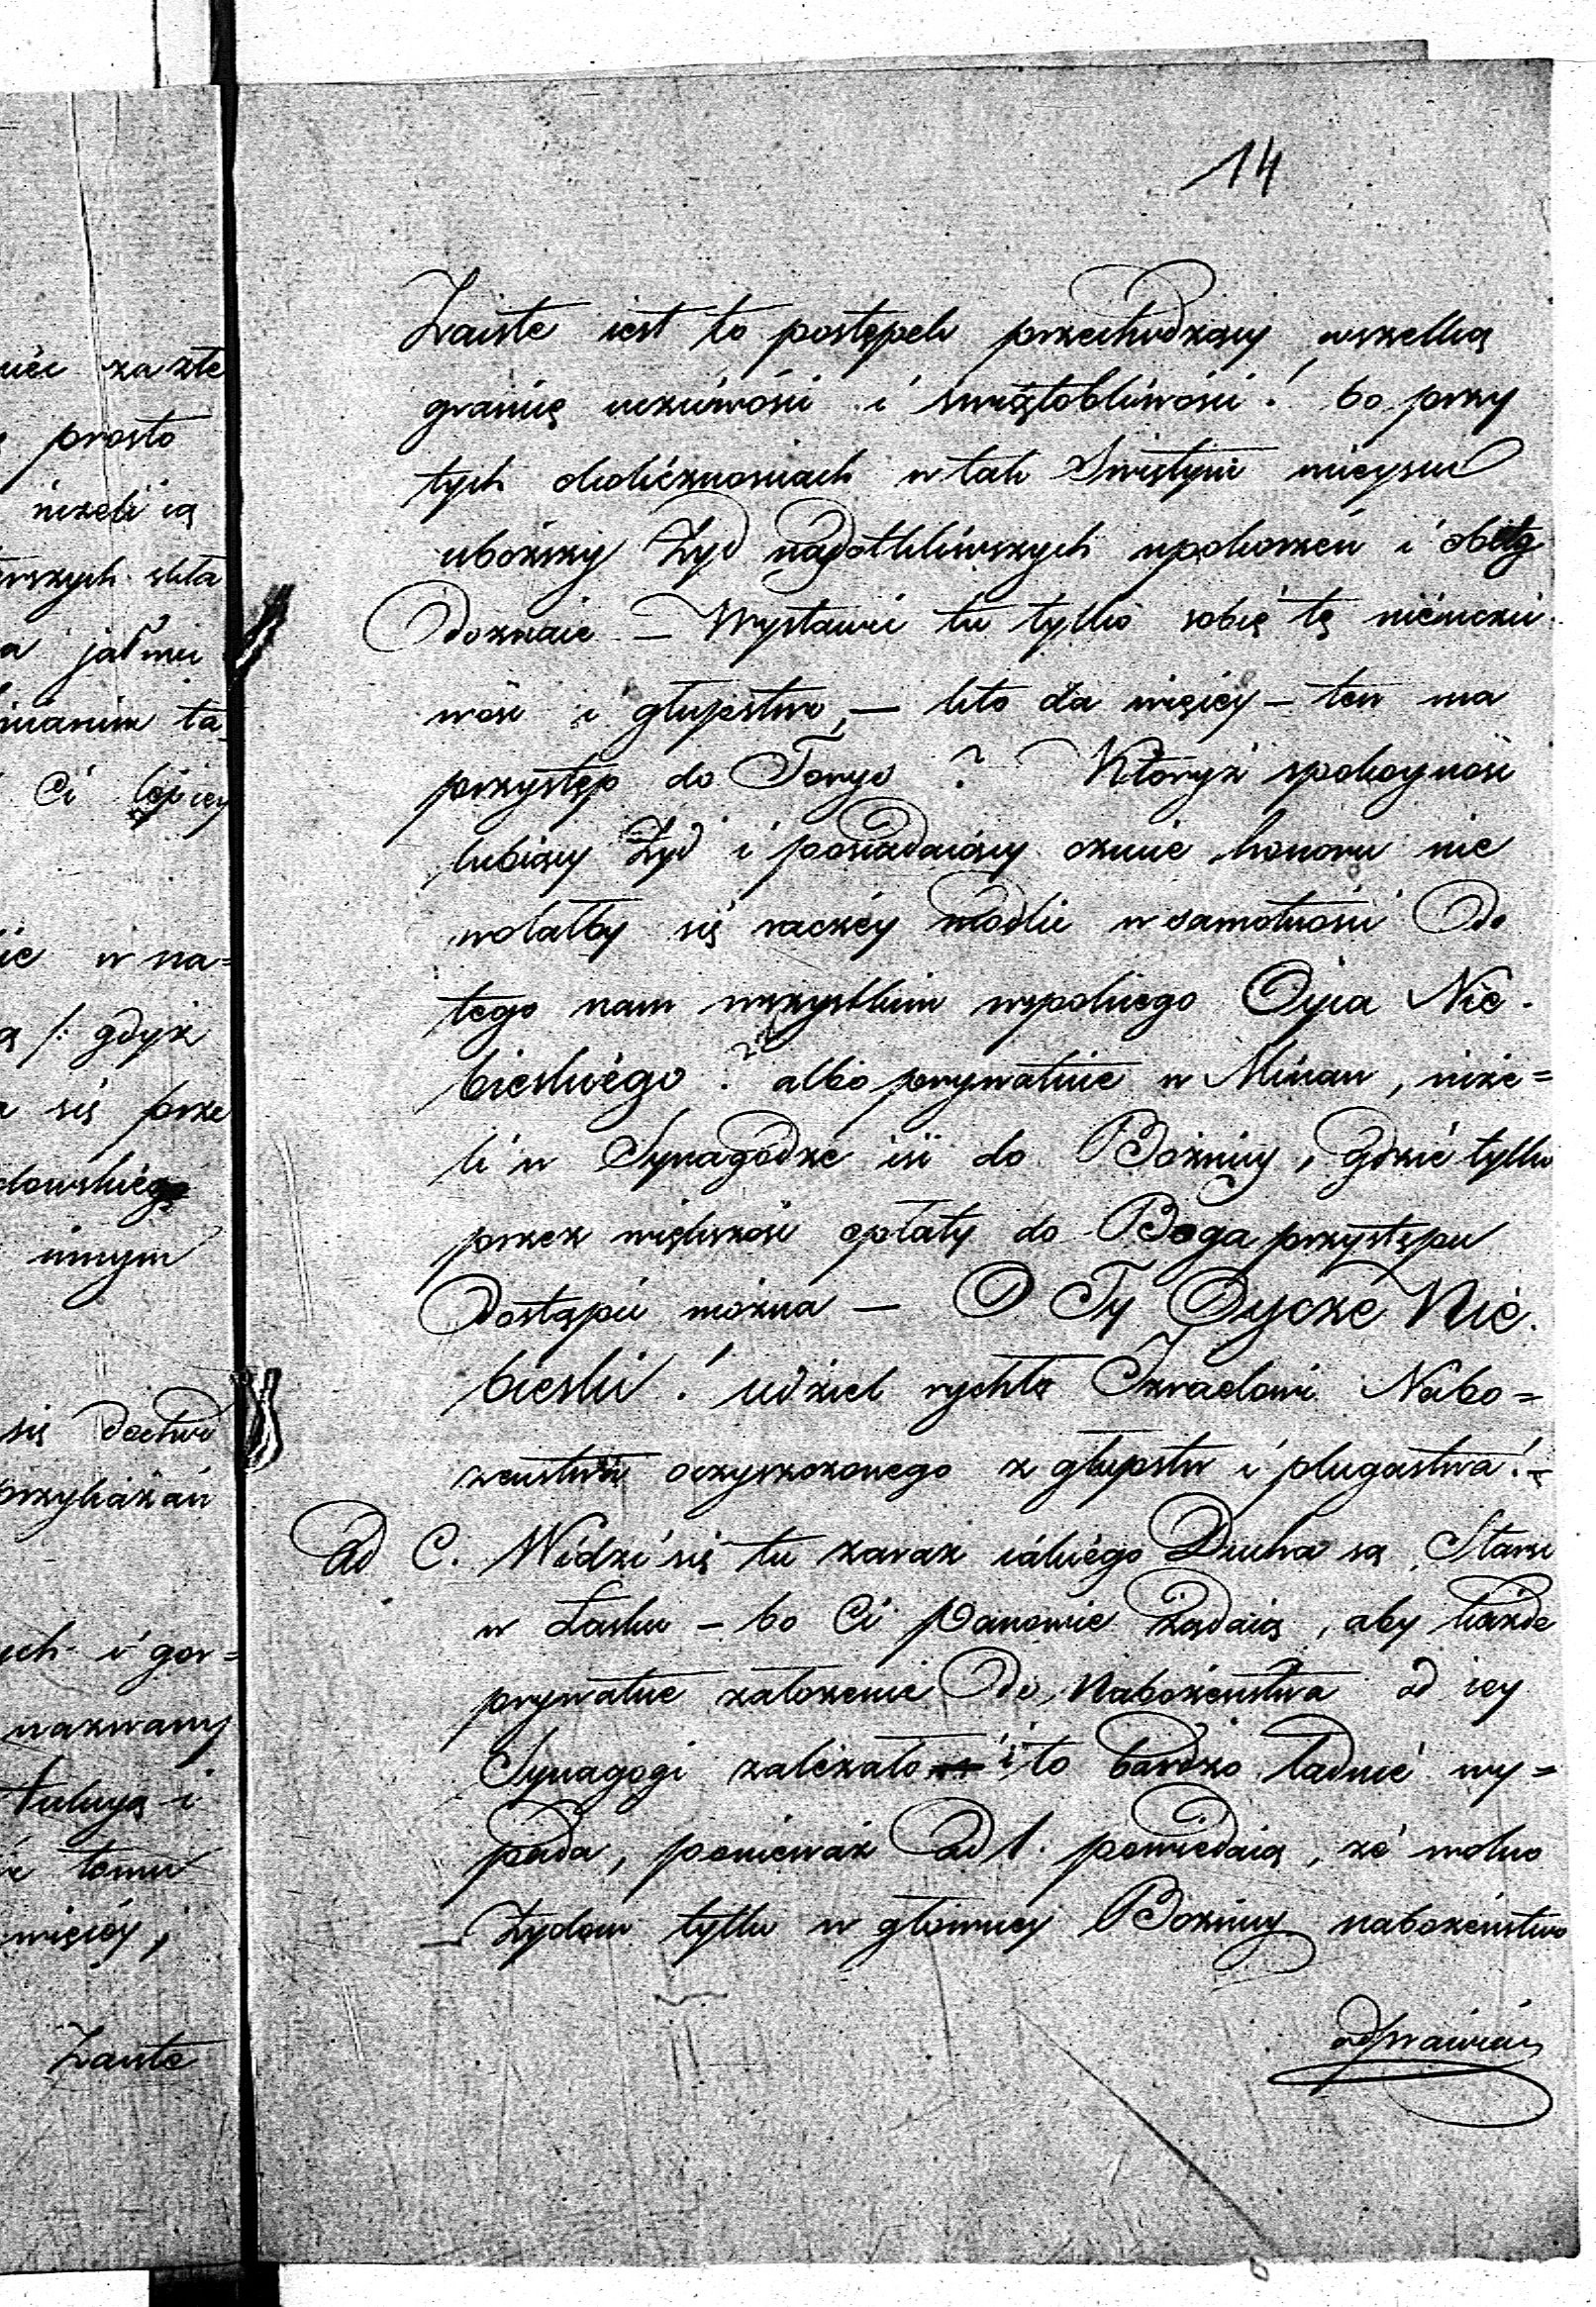 uéc za złe
prosto
niżeli ią
rszych skła
a jał mu
nianim ta
Ci lepiey
ie w na=
a /: gdyż
a się prze
dowskiego
innym
się
przykazań
ych i gor=
nazwany
i
ie temu
więcéy,
Zaiste
14
Zaiste iest to postępek przechodzący wszelką
granię uczciwości i świętobliwości! bo przy
tych okolicznosciach w tak Swiętym mieyscu
uboższy Żyd naydotkliwszych upokorzeń i obelg
doznaie — Wystawić tu tylko sobie tę nieuczci-
wośc i głupstwo, — kto da więcéy — ten ma
przystęp do Tory ? Któryż spokoyność
lubiący Żyd i posiadaiący czucie honoru nie
wolałby się raczéy modlić w samotności do
tego nam wszystkim wspolnego Oyca Nie-
bieskiego ? albo prywatnie w Minian, niże=
li w Synagodze iść do Bożnicy, gdzie tylko
przez większość opłaty do Boga przystępu
dostąpić można — O Ty Oycze Nie-
bieski! udziel rychło Izraelowi Nabo=
zenstwa oczyszczonego z głupstw i plugastwa! —
Ad C. Widzi się tu zaraz iakiego Ducha są Starsi
w Łasku — bo Ci Panowie żądaią, aby każde
prywatne założenie do Nabożenstwa od iey
Synagogi zależało i to bardzo ładnie wy=
pada, ponieważ Ad 1. powiedaią, że wolno
Żydom tylko w głównéy Bożnicy nabożeństwo
odprawiać